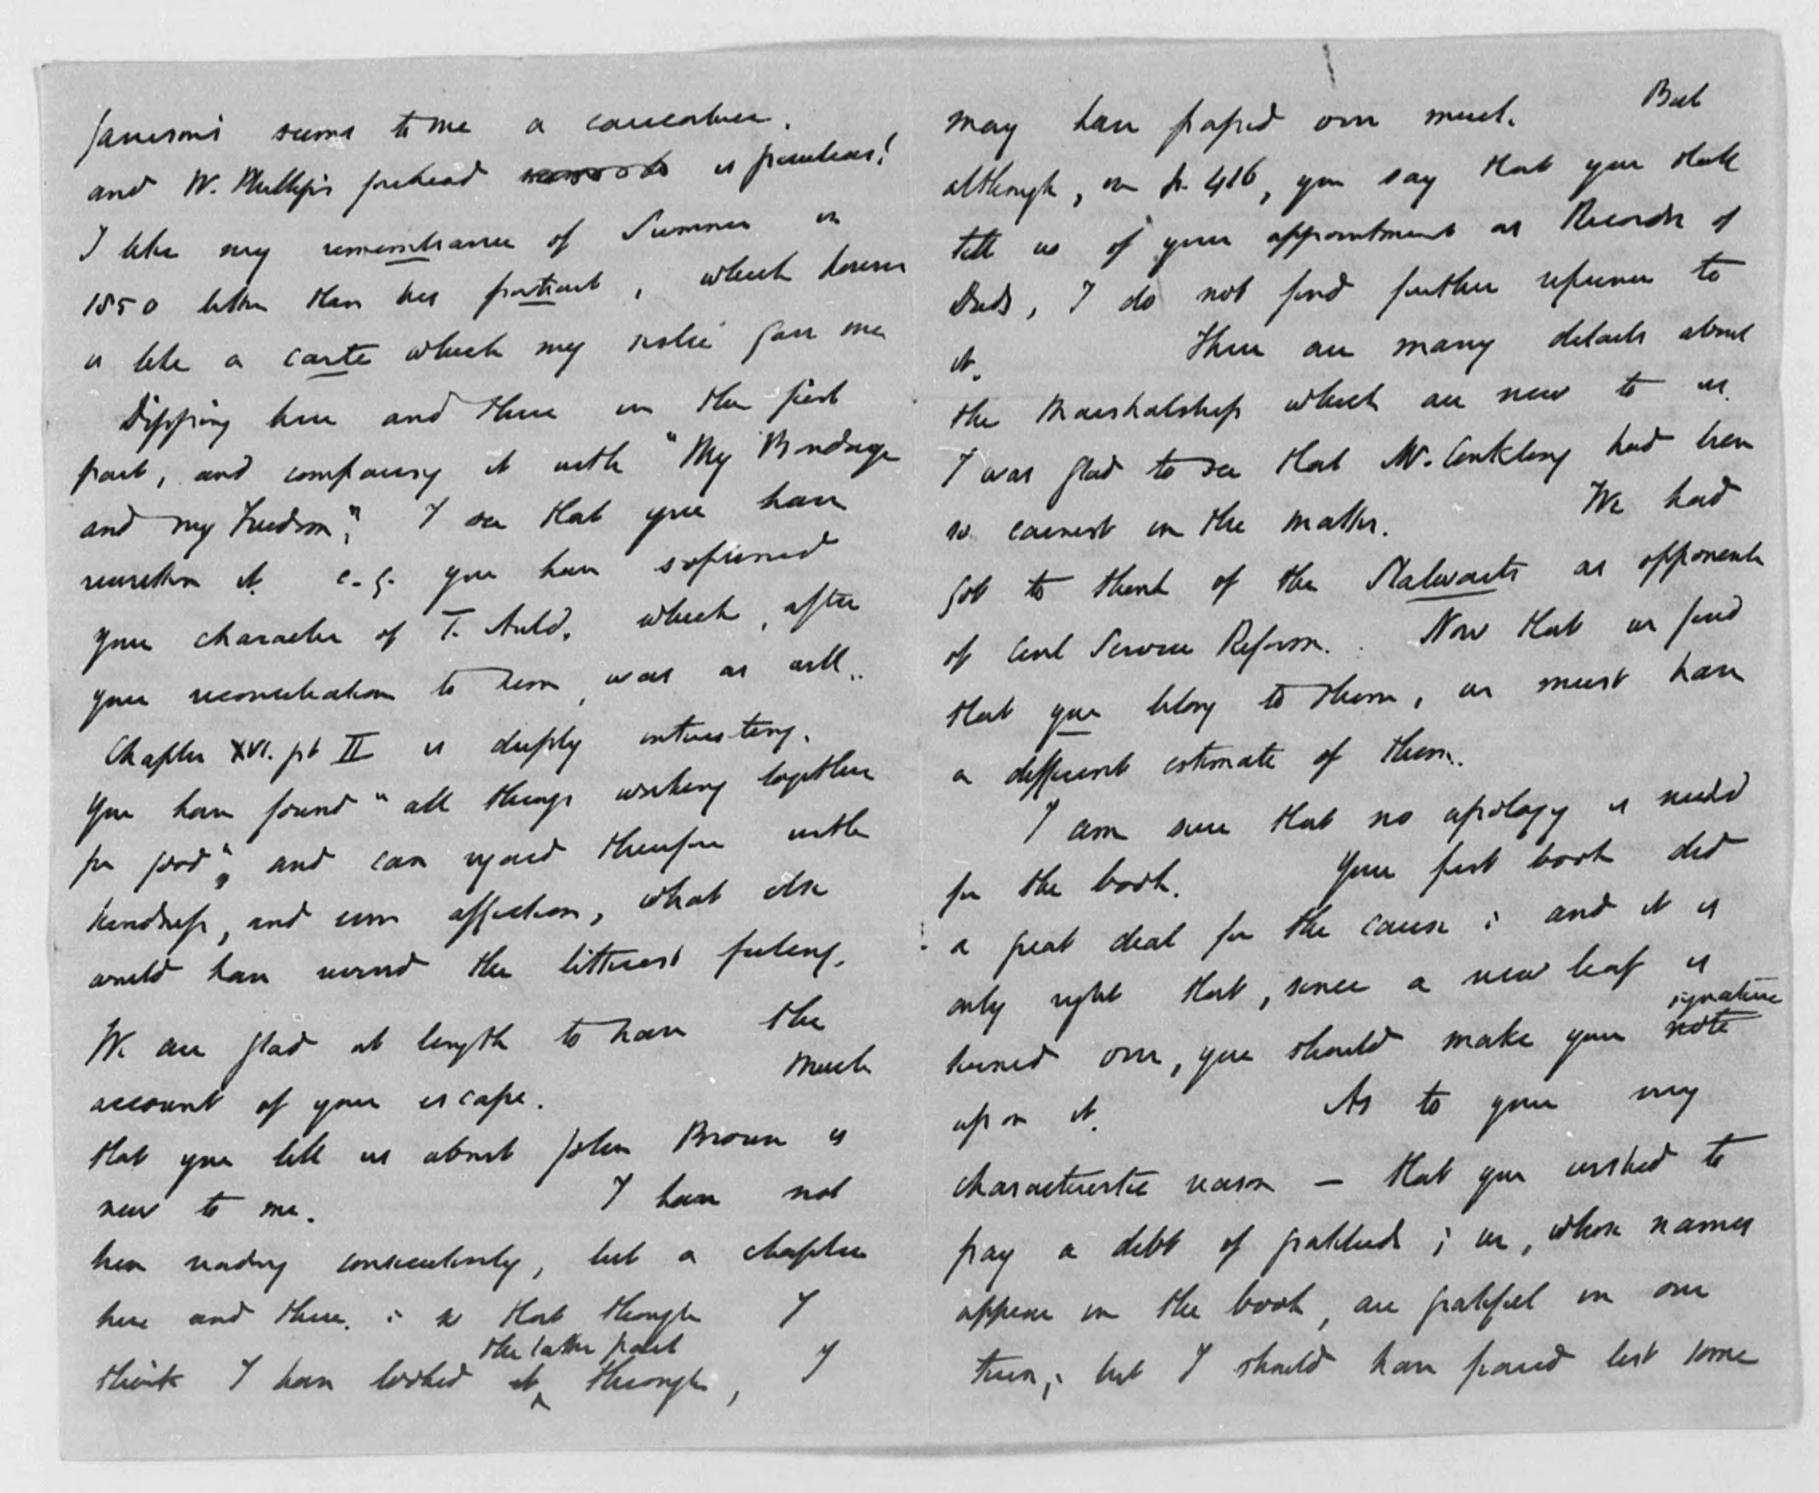 Garrison's seems to me a caricature.
and W. Phillips's forehead is peculiar!
I like my remembrance of Sumner in
1850 better than his portrait, which however
is like a carte which my sister gave me
Dipping here and there in the first
part, and comparing it with "My Bondage
and my Freedom", I see that you have
rewritten it. e.g. you have softened
your character of T. Auld, which, after
your reconciliation to him, was as well.
Chapter XVI. pt II is deeply interesting.
You have found "all things working together
for good", and can regard therefore with
kindness, and even affection, what else
would have moved the bitterest feeling.
We are glad at length to have the
account of your escape. Much
that you tell us about John Brown is
new to me. I have not
been reading consecutively, but a chapter
here and there. : so that though I
think I have looked it the latter part through, I
may have passed over much. But
although, on p. 416, you say that you shall
tell us of your appointment as Recorder of
Deeds, I do not find further reference to
it. There are many details about
the Marshalship which are new to us.
I was glad to see that Mr. Conkling had been
so earnest in the matter. We had
got to think of the Stalwarts as opponents
of Civil Service Reform. Now that we find
that you belong to them, we must have
a different estimate of them.
I am sure that no apology is needed
for the book. Your first book did
a great deal for the cause : and it is
only right that, since a new leaf is
turned over, you should make your note signature
upon it. As to your very
characteristic reason — that you wished to
pay a debt of gratitude ; we, whose names
appear in the book, are grateful in our
turn ; but I should have feared lest some